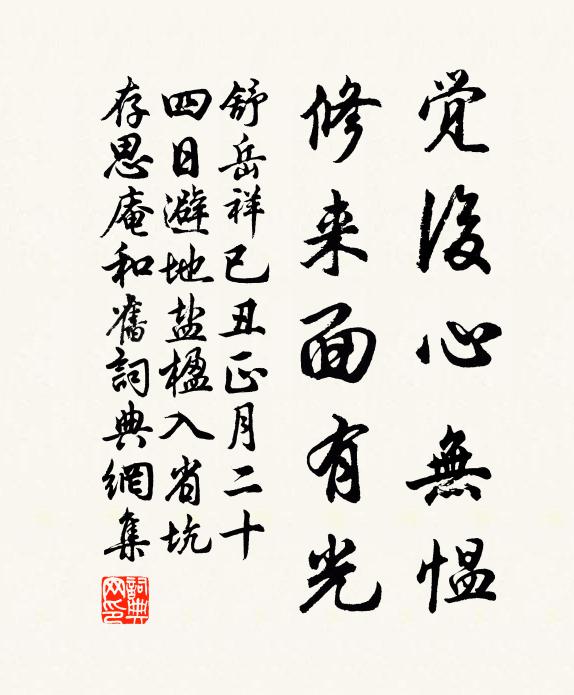 覚後心無愠
修来面有光
舒岳祥已丑正月二十
四日避地盐楹入省坑
存思庵和舊詞典網集
詞典网印